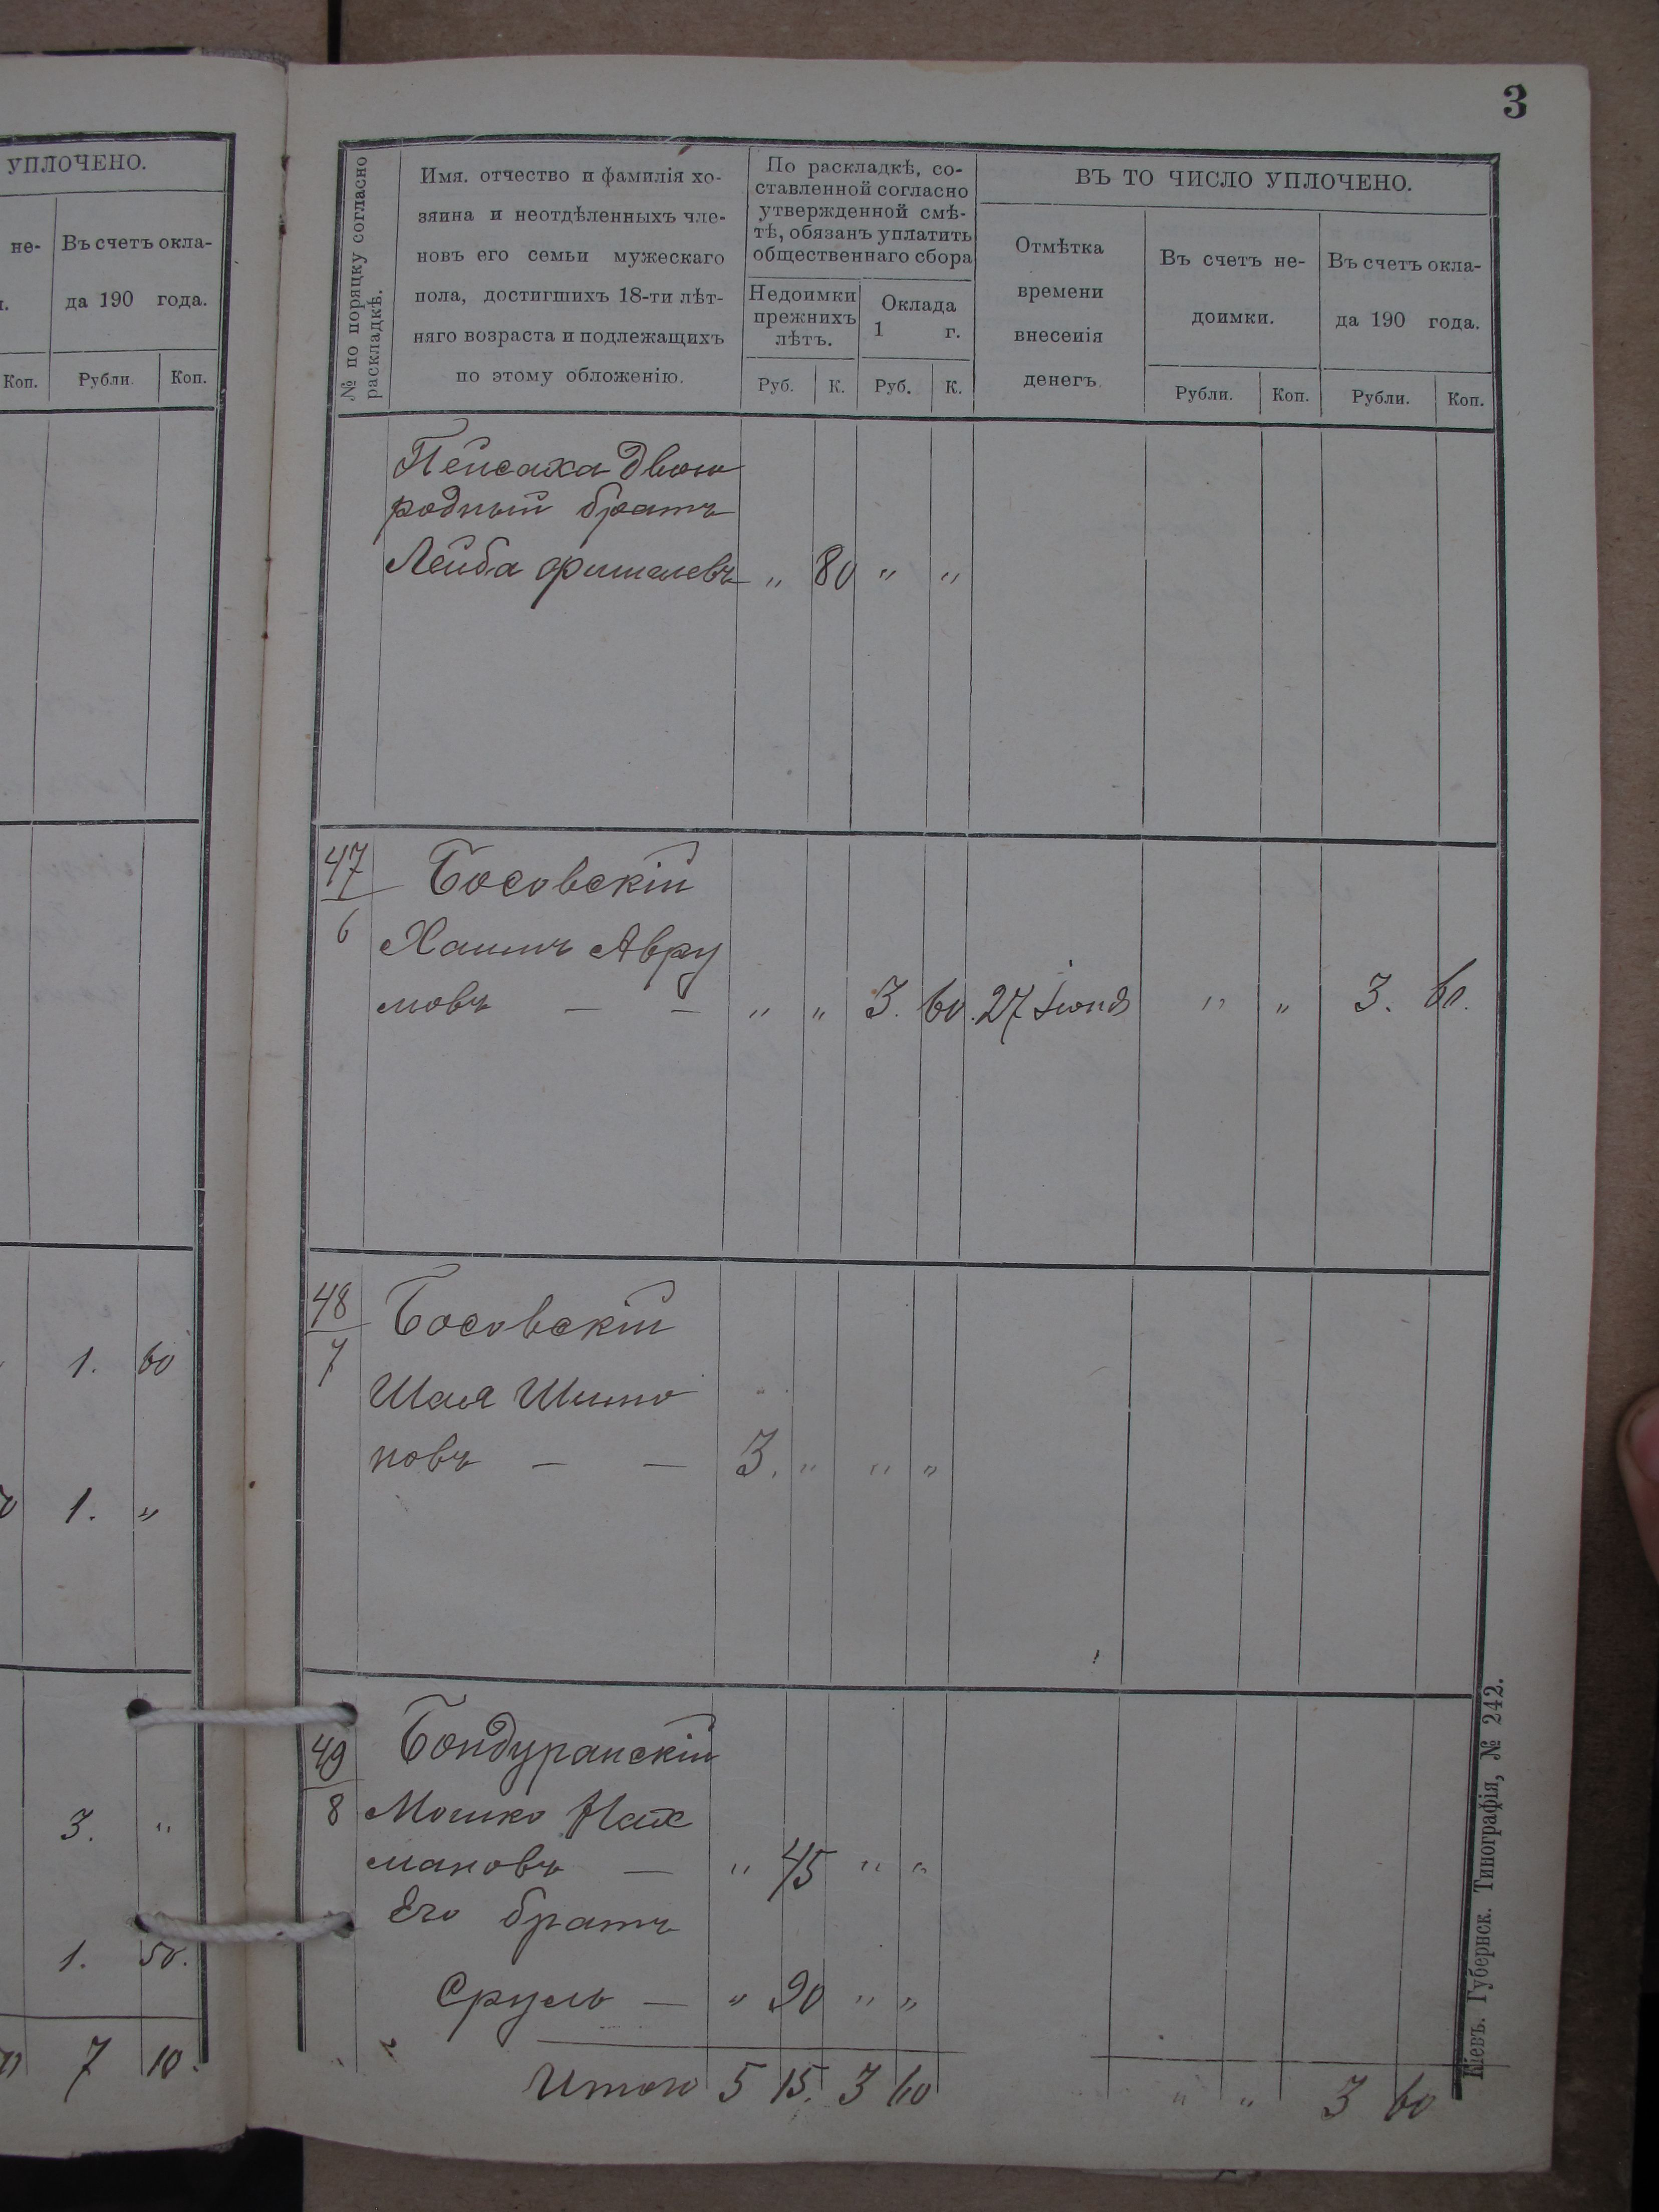 3
УПЛОЧЕНО.
не-
Въ счетъ окла-
да 190 года.
Коп.
Рубли.
Коп.
1. 60
1. "
3. "
1. 50.
7 10.
№ по поряцку согласно
раскладкѣ.
Имя. отчество и фамилія хо-
зяина и неотдѣленныхъ чле-
новъ его семьи мужескаго
пола, достигшихъ 18-ти лѣт-
няго возраста и подлежащихъ
по этому обложенію.
По раскладкѣ, со-
ставленной согласно
утвержденной смѣ-
тѣ, обязанъ уплатить
общественнаго сбора
Недоимки
прежнихъ
лѣтъ.
Оклада
1 г.
Руб. К. Руб. К.
ВЪ ТО ЧИСЛО УПЛОЧЕНО.
Отмѣтка
времени
внесенія
денегъ.
Въ счетъ не-
доимки.
Въ счетъ окла-
да 190 года.
Рубли. Коп. Рубли. Коп.
Пейсаха двою
родный братъ
Лейба Фишелевъ " 80 " "
47 Босовскій
6 Хаимъ Авру
мовъ — — " " 3. 60. 27 іюня " " 3. 60.
48 Босовскій
7
Шая Шимо
новъ — — 3. " " "
49 Бондуранскій
8 Мошко Нах
мановъ — " 45 " "
Его братъ
Сруль — " 90 " "
Итого 5 15. 3 60 " " 3 60
Кіевъ. Губернск. Типографія, № 242.